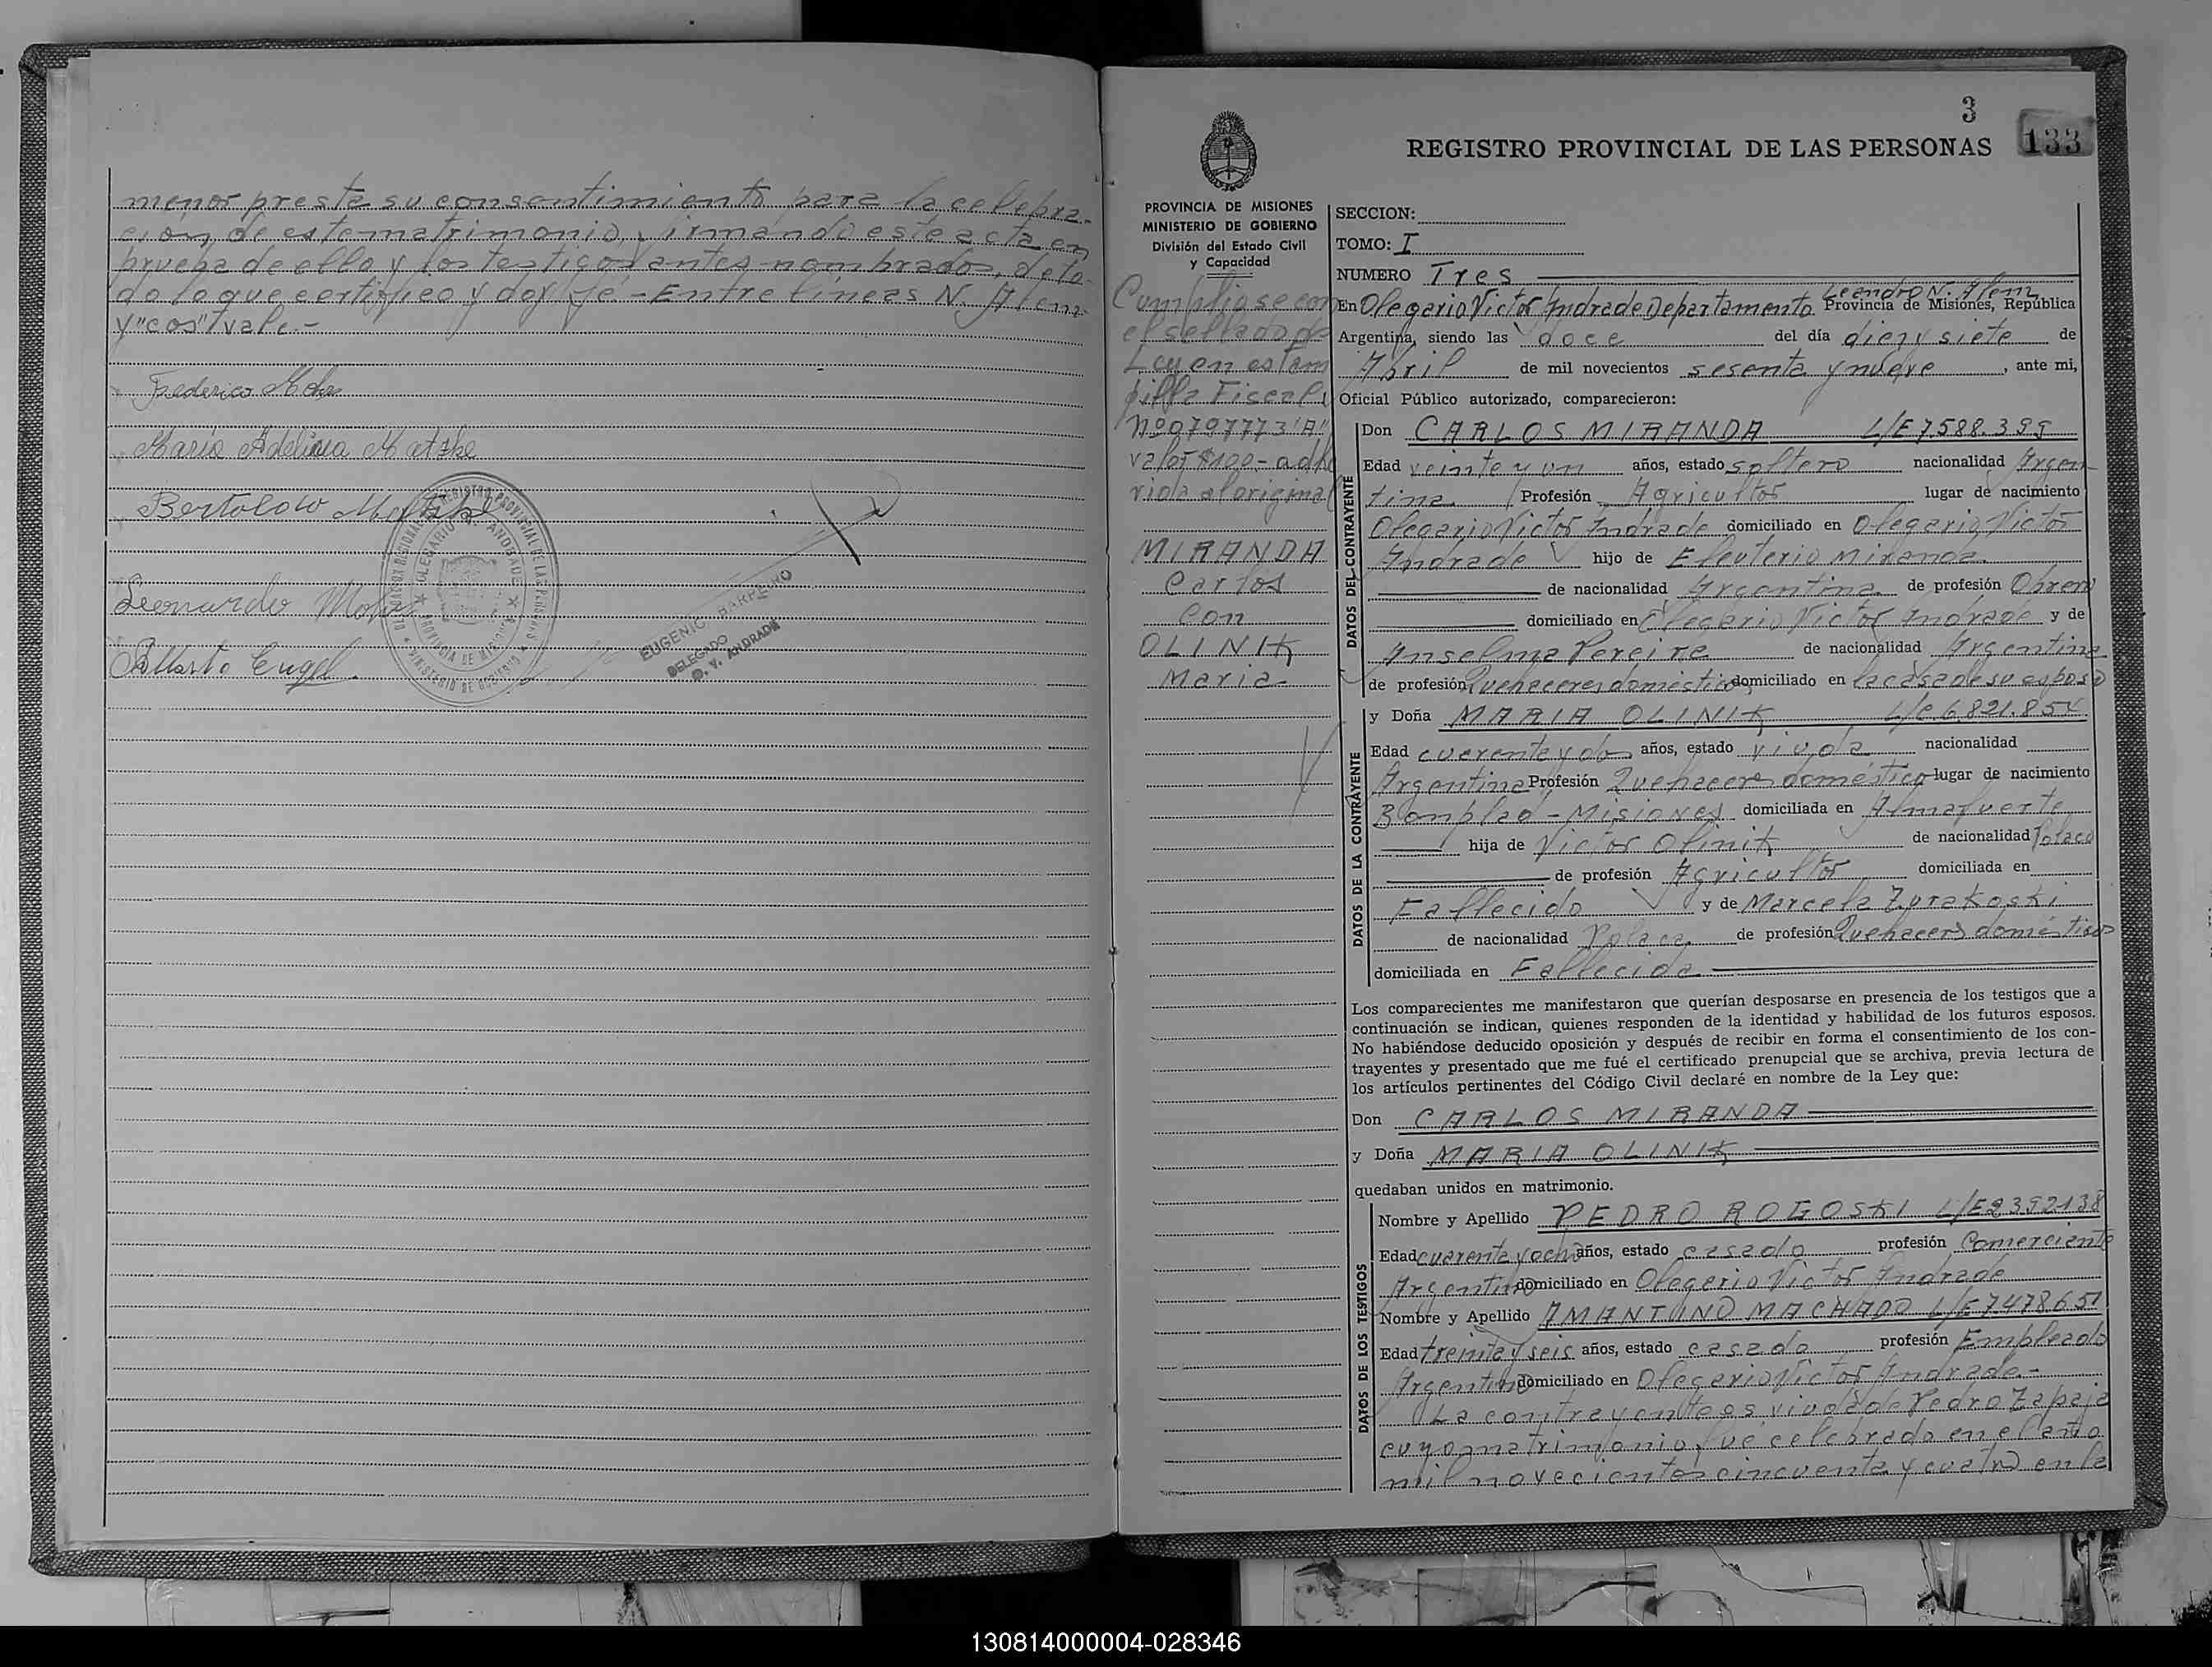 menor presta su consentimiento para la celebra-
ción de este matrimonio, firmando este acta en
prueba de ello y los testigos antes nombrados, de to-
do lo que certifico y doy fé - Entre líneas N. Alem
y "cos" vale.-
Federico Mohr
Maria Adelina Matzke
Bertoldo Matzke
Leonardo Mohr
Alberto Engel
REGISTRO PROVINCIAL DE LAS PERSONAS
OLEGARIO V. ANDRADE
PROVINCIA DE MISIONES
MINISTERIO DE GOBIERNO
EUGENIO BARREIRO
DELEGADO
O. V. ANDRADE
3
133
REGISTRO PROVINCIAL DE LAS PERSONAS
PROVINCIA DE MISIONES
MINISTERIO DE GOBIERNO
División del Estado Civil
y Capacidad
Cumpliose con
el sellado de
Ley en estam
pilla Fiscal
Nº0707773"A"
valor $100.- adhe
rida al original
MIRANDA
Carlos
con
OLINIK
Maria
SECCION:
TOMO: I
NUMERO Tres
Leandro N. Alem
En Olegario Victor Andrade Departamento Provincia de Misiones, República
Argentina, siendo las doce del día diez y siete de
Abril de mil novecientos sesenta y nueve, ante mi,
Oficial Público autorizado, comparecieron:
DATOS DEL CONTRAYENTE
Don CARLOS MIRANDA L/E 7.588.399
Edad veinte y un años, estado soltero nacionalidad Argen
tina Profesión Agricultor lugar de nacimiento
Olegario Victor Andrade domiciliado en Olegario Victor
Andrade hijo de Eleuterio Miranda
de nacionalidad Argentina de profesión Obrero
domiciliado en Olegario Victor Andrade y de
Anselma Pereira de nacionalidad Argentina
de profesión Quehaceres domésticos domiciliado en la casa de su esposo
DATOS DE LA CONTRAYENTE
y Doña MARIA OLINIK L/C 6.821.854
Edad cuarenta y dos años, estado viuda nacionalidad
Argentina Profesión Quehaceres doméstico lugar de nacimiento
Bomplad - Misiones domiciliada en Almafuerte
hija de Victor Olinik de nacionalidad Polaco
de profesión Agricultor domiciliada en
Fallecido y de Marcela Zurakoski
de nacionalidad Polaca de profesión Quehacers domésticos
domiciliada en Fallecida
Los comparecientes me manifestaron que querían desposarse en presencia de los testigos que a
continuación se indican, quienes responden de la identidad y habilidad de los futuros esposos.
No habiéndose deducido oposición y después de recibir en forma el consentimiento de los con-
trayentes y presentado que me fué el certificado prenupcial que se archiva, previa lectura de
los artículos pertinentes del Código Civil declaré en nombre de la Ley que:
Don CARLOS MIRANDA
y Doña MARIA OLINIK
quedaban unidos en matrimonio.
DATOS DE LOS TESTIGOS
Nombre y Apellido PEDRO ROGOSKI L/E 2392138
Edad cuarenta y ocho años, estado casado profesión Comerciante
Argentino domiciliado en Olegario Victor Andrade
Nombre y Apellido AMANTINO MACHADO L/E 7478651
Edad treinta y seis años, estado casado profesión Empleado
Argentino domiciliado en Olegario Victor Andrade.-
La contrayente es viuda de Pedro Zapaja
cuyo matrimonio fue celebrado en el año
mil novecientos cincuenta y cuatro en la
130814000004-028346